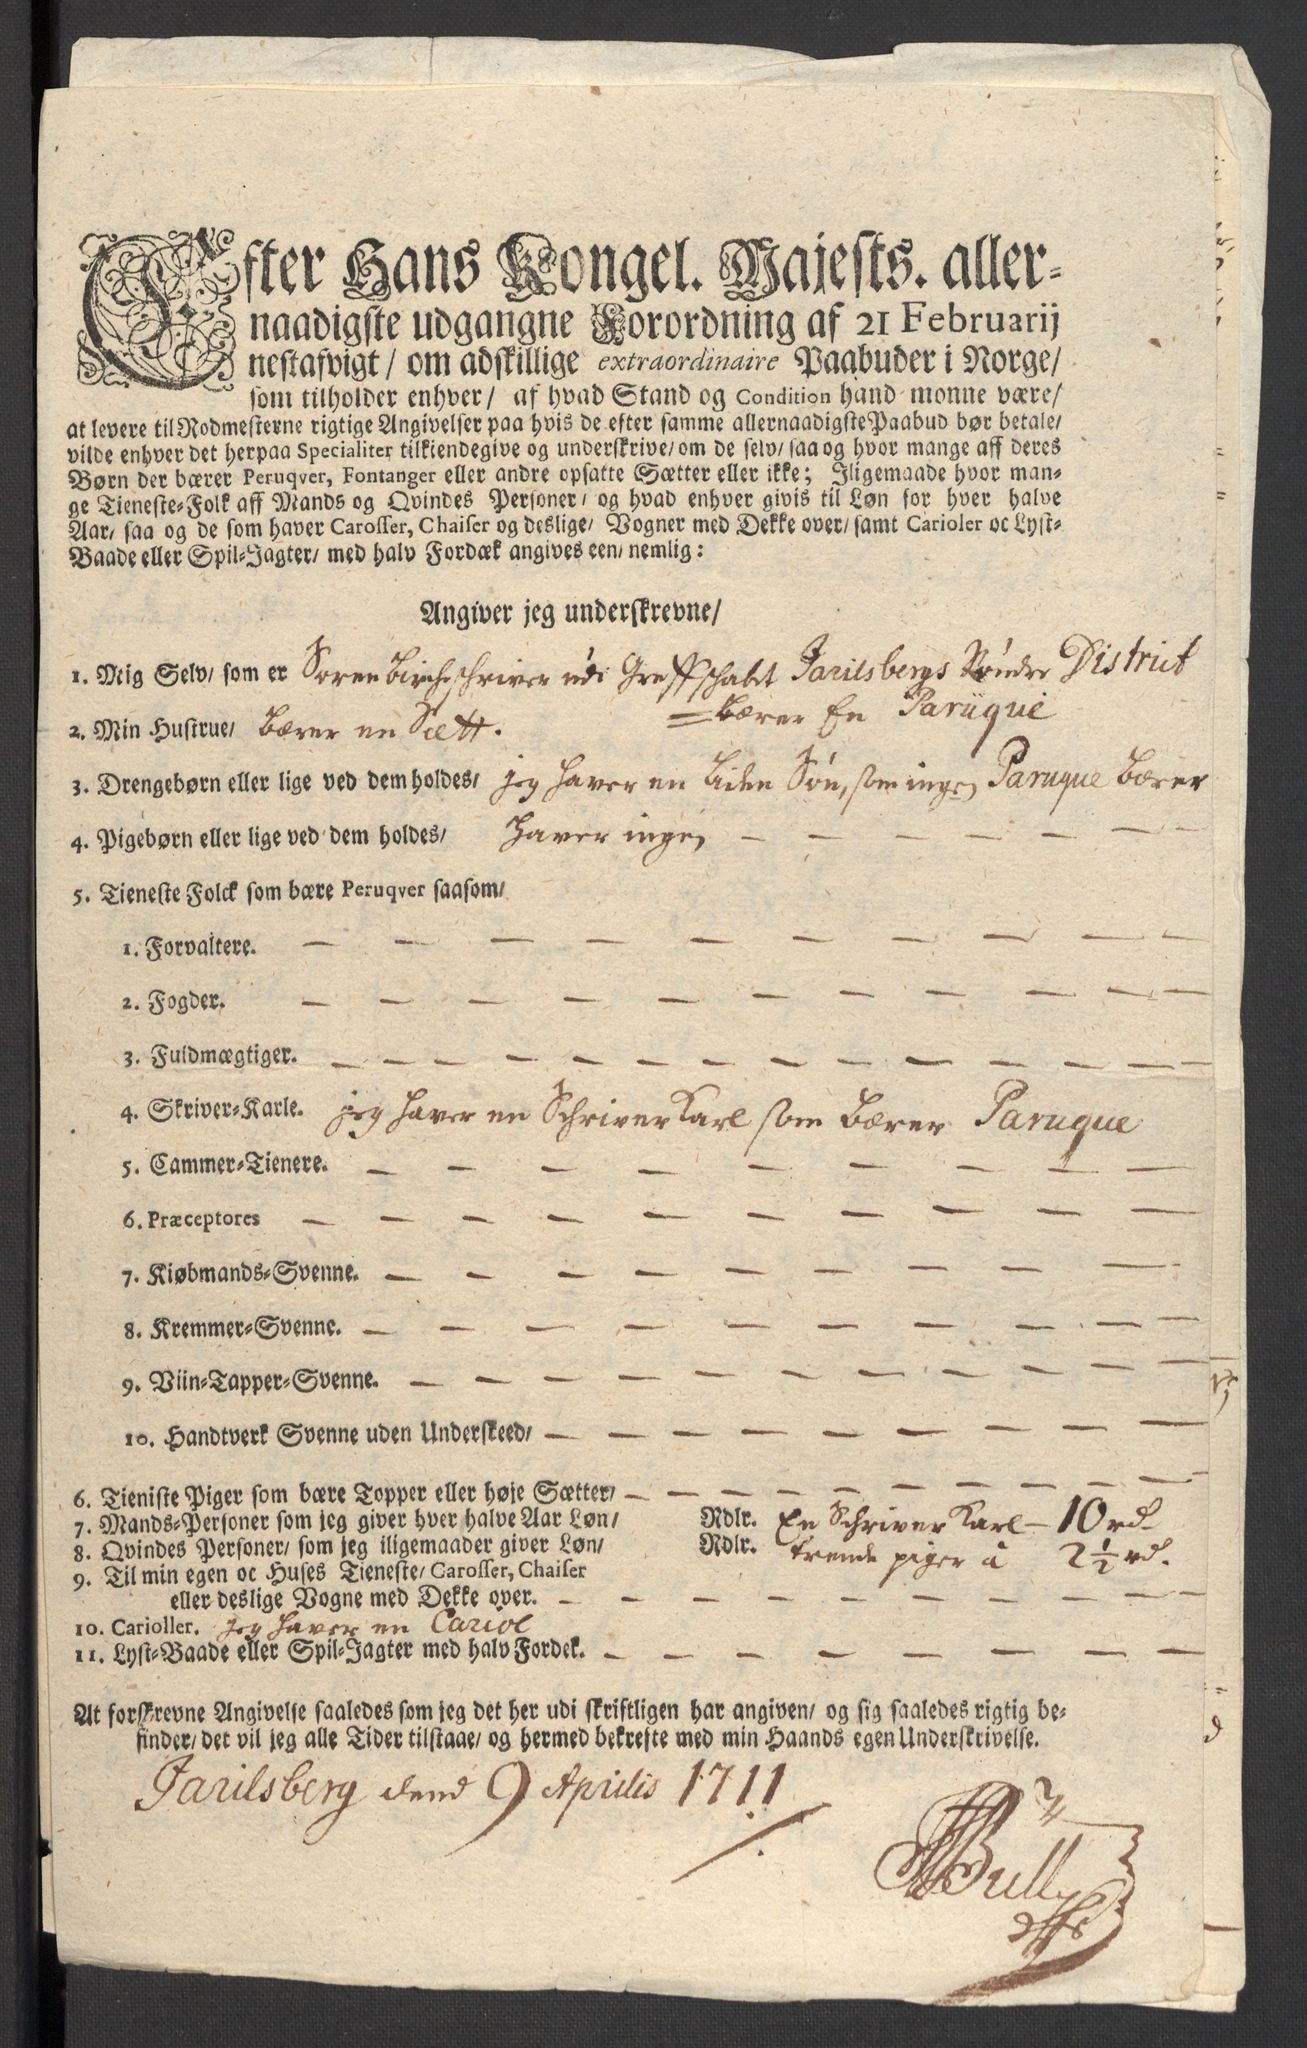 Efter Hans Kongel. Majests. aller-
naadigste udgangne Forordning af 21 Februarij
nestafvigt/ om adskillige extraordinaire Paabuder i Norge/
som tilholder enhver/ af hvad Stand og Condition hand monne være/
at levere til Rodmesterne rigtige Angivelser paa hvis de efter samme allernaadigste Paabud bør betale/
vilde enhver det herpaa Specialiter tilkiendegive og underskrive/ om de selv/ saa og hvor mange aff deres
Børn der bærer Peruqver, Fontanger eller andre opsatte Sætter eller ikke; Iligemaade hvor man-
ge Tieneste-Folk aff Mands og Qvindes Personer/ og hvad enhver givis til Løn for hver halve
Aar/ saa og de som haver Carosser, Chaiser og deslige/ Vogner med Dekke over/ samt Carioler oc Lyst-
Baade eller Spil-Jagter/ med halv Fordæk angives een/ nemlig:
Angiver jeg underskrevne/
1. Mig Selv/ som er Sorenbirchschriver udi Greffschabet Jarilsbergs Søndre District
= bærer En Paruque
2. Min Hustrue/ bærer en Sætt.
3. Drengebørn eller lige ved dem holdes/ jeg haver en liden Søn, som ingen Paruque bærer
4. Pigebørn eller lige ved dem holdes/ haver ingen — — — — — —
5. Tieneste Folck som bære Peruqver saasom/
1. Forvaltere. — — — — — — — — — —
2. Fogder. — — — — — — — — — —
3. Fuldmægtiger. — — — — — — — — — —
4. Skriver-Karle. jeg haver en Schriver Karl som bærer Paruque
5. Cammer-Tienere. — — — — — — — — —
6. Præceptores — — — — — — — — —
7. Kiøbmands-Svenne. — — — — — — — —
8. Kremmer-Svenne. — — — — — — — — —
9. Viin-Tapper-Svenne. — — — — — — — — —
10. Handtverk Svenne uden Underskeed/ — — — — — — — —
6. Tieniste Piger som bære Topper eller høje Sætter/ — — — — — — — —
7. Mands-Personer som jeg giver hver halve Aar Løn/ Rdlr. En Schriver Karl — 10 rd.
8. Qvindes Personer/ som jeg iligemaader giver Løn/ Rdlr. trende piger a 2½ rd.
9. Til min egen oc Huses Tieneste/ Carosser, Chaiser
eller deslige Vogne med Dekke over. — — — — — — — — —
10. Carioller. jeg haver en Cariol
11. Lyst-Baade eller Spil-Jagter med halv Fordek. — — — — — — — —
At forskrevne Angivelse saaledes som jeg det her udi skriftligen har angiven/ og sig saaledes rigtig be-
finder/ det vil jeg alle Tider tilstaae/ og hermed bekrefte med min Haands egen Underskrivelse.
Jarilsberg dend 9 Aprilis 1711
Bull